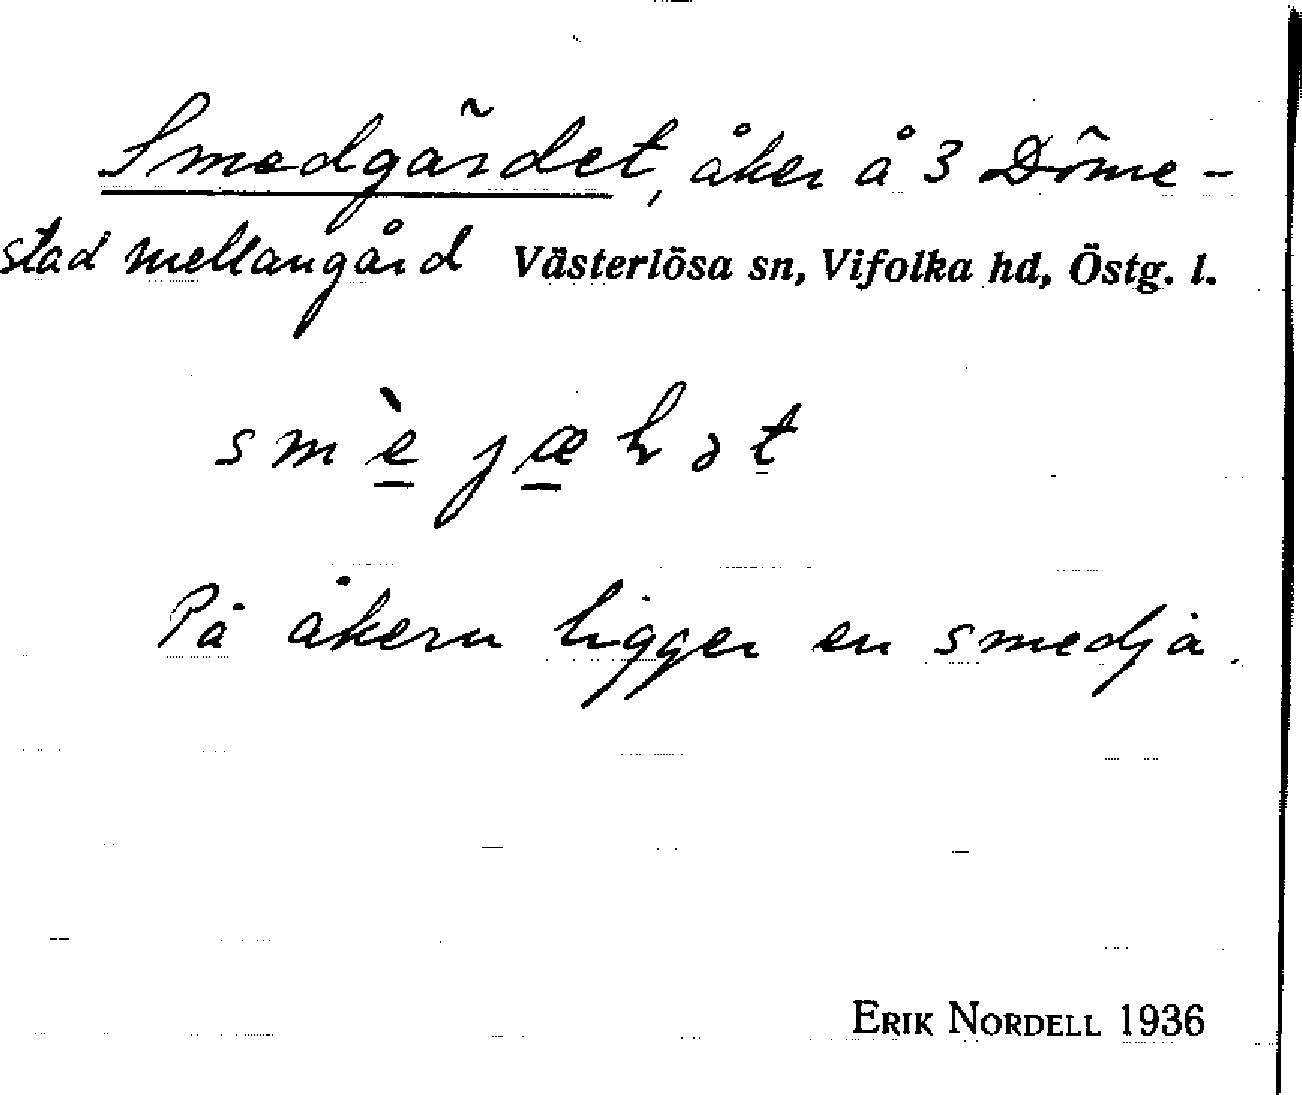 Smedgärdet, åker å 3 Döme-
stad mellangård Västerlösa sn, Vifolka hd, Östg. l.
smè̱jæ̱ƚət
På åkern ligger en smedja.
ERIK NORDELL 1936